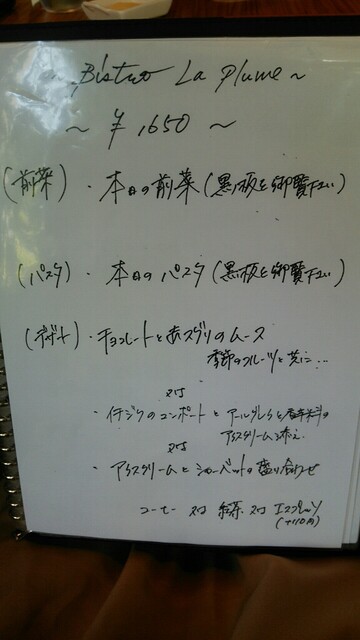 Bistro La Plume ~
~ ¥1650 ~
(前菜)・本日の前菜(黒板を御覧下さい)
(パスタ)・本日のパスタ(黒板を御覧下さい)
(デザート)・チョコレートと赤スグリのムース
季節のフルーツと共に…
又は
・イチジクのコンポート と アールグレイと香辛料の
アイスクリームを添え
又は
・アイスクリームとシャーベットの盛り合わせ
コーヒー 又は 紅茶 又は エスプレッソ
(+110円)